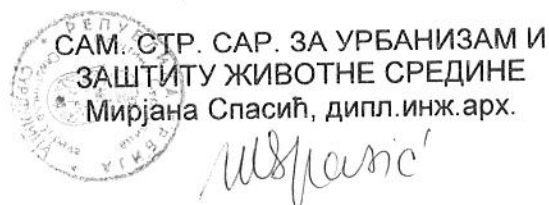 САМ. СТР. САР. ЗА УРБАНИЗАМ И
ЗАШТИТУ ЖИВОТНЕ СРЕДИНЕ
Мирјана Спасић, дипл.инж.арх.
MSpasić